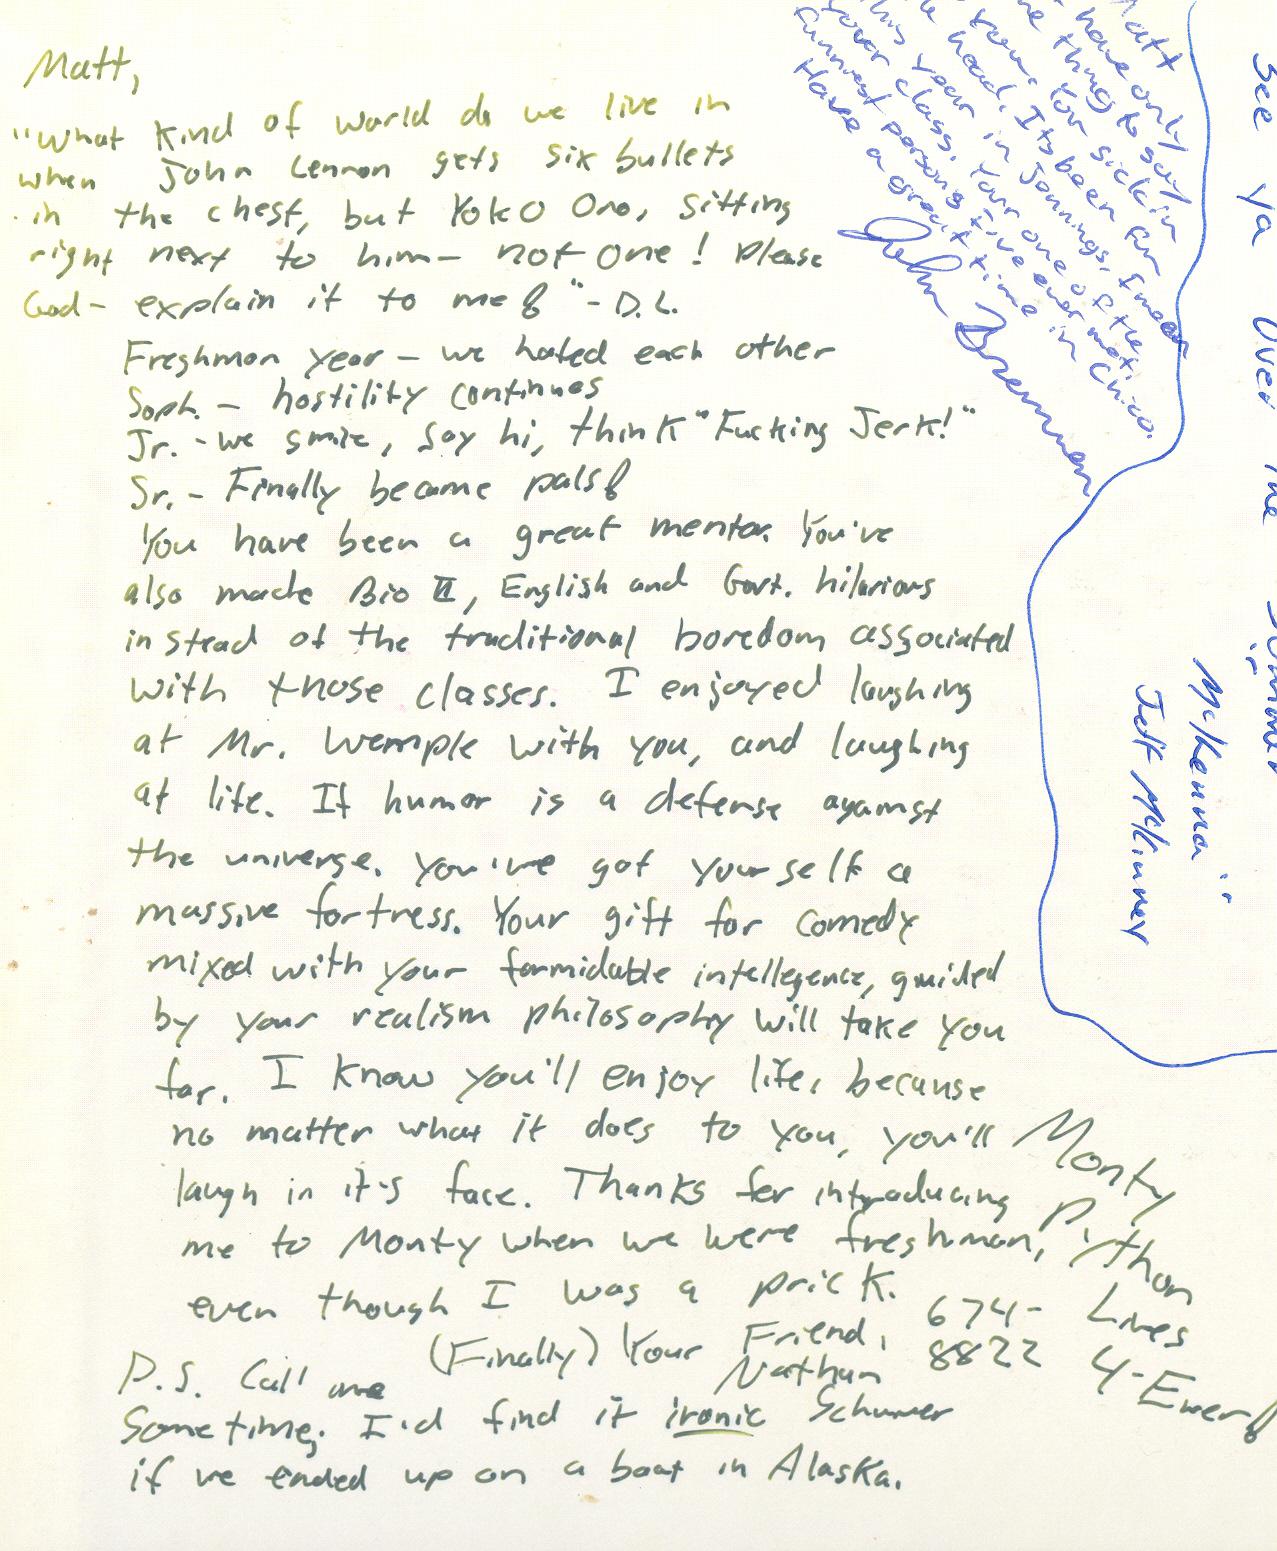 Matt,
"What kind of world do we live in
when John Lennon gets six bullets
in the chest, but Yoko Ono, sitting
right next to him - not one! Please
God - explain it to me! " - D.L.
Freshman year - we hated each other
Soph. - hostility continues
Jr. - we smile, say hi, think "Fucking Jerk!"
Sr. - Finally became pals!
You have been a great mentor. You've
also made Bio II, English and Govt. hilarious
instead of the traditional boredom associated
with those classes. I enjoyed laughing
at Mr. Wemple with you, and laughing
at life. If humor is a defense against
the universe, you've got yourself a
massive fortress. Your gift for comedy
mixed with your formidable intellegence, guided
by your realism philosophy will take you
far. I know you'll enjoy life, because
no matter what it does to you, you'll
laugh in it's face. Thanks for introducing
me to Monty when we were freshman,
even though I was a prick.
(Finally) Your Friend,
Nathan
Schumer
674-
8822
Monty
Python
Lives
4-Ever!
P.S. Call me
sometime; I'd find it ironic
if we ended up on a boat in Alaska.
Matt
have only
things to say
you. Your sick in
head. Its been fun
this year in Jennings, I mean
your class. Your one of the
funniest persons I've ever met.
Have a great time in Chico.
John Brennan
See ya over the summer
"McKenna"
Jeff McKinney